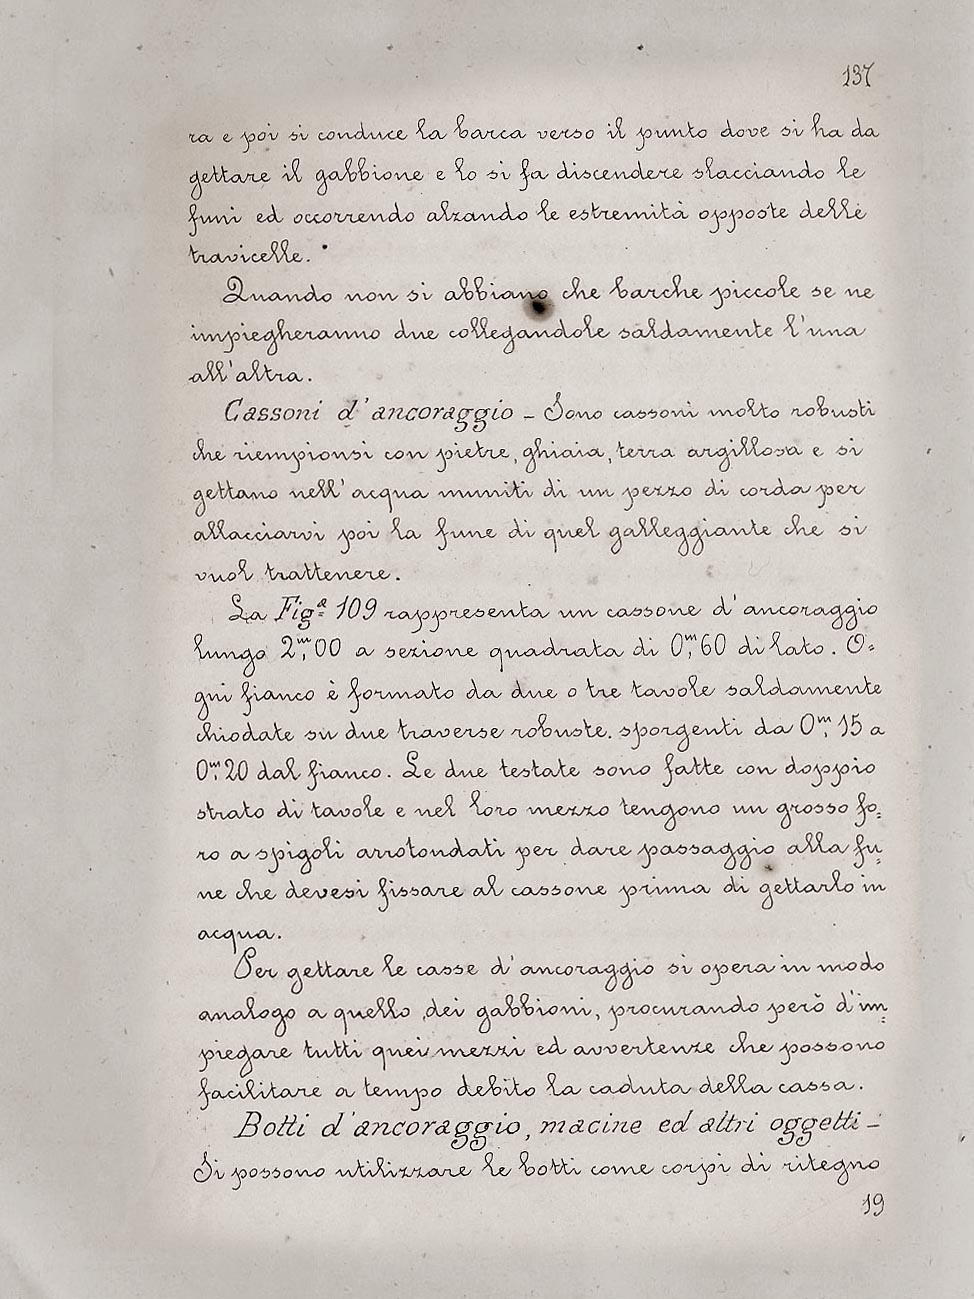 137
ra e poi si conduce la barca verso il punto dove si ha da
gettare il gabbione e lo si fa discendere slacciando le
funi ed occorrendo alzando le estremità opposte delle
travicelle.
Quando non si abbiano che barche piccole se ne
impiegheranno due collegandole saldamente l'una
all'altra.
Cassoni d'ancoraggio - Sono cassoni molto robusti
che riempionsi con pietre, ghiaia, terra argillosa e si
gettano nell'acqua muniti di un pezzo di corda per
allacciarvi poi la fune di quel galleggiante che si
vuol trattenere.
La Figª 109 rappresenta un cassone d'ancoraggio
lungo 2,ᵐ00 a sezione quadrata di 0,ᵐ60 di lato. O=
gni fianco è formato da due o tre tavole saldamente
chiodate su due traverse robuste. sporgenti da 0,ᵐ15 a
0,ᵐ20 dal fianco. Le due testate sono fatte con doppio
strato di tavole e nel loro mezzo tengono un grosso fo=
ro a spigoli arrotondati per dare passaggio alla fu=
ne che devesi fissare al cassone prima di gettarlo in
acqua.
Per gettare le casse d'ancoraggio si opera in modo
analogo a quello dei gabbioni, procurando però d'im=
piegare tutti quei mezzi ed avvertenze che possono
facilitare a tempo debito la caduta della cassa.
Botti d'ancoraggio, macine ed altri oggetti -
Si possono utilizzare le botti come corpi di ritegno
19